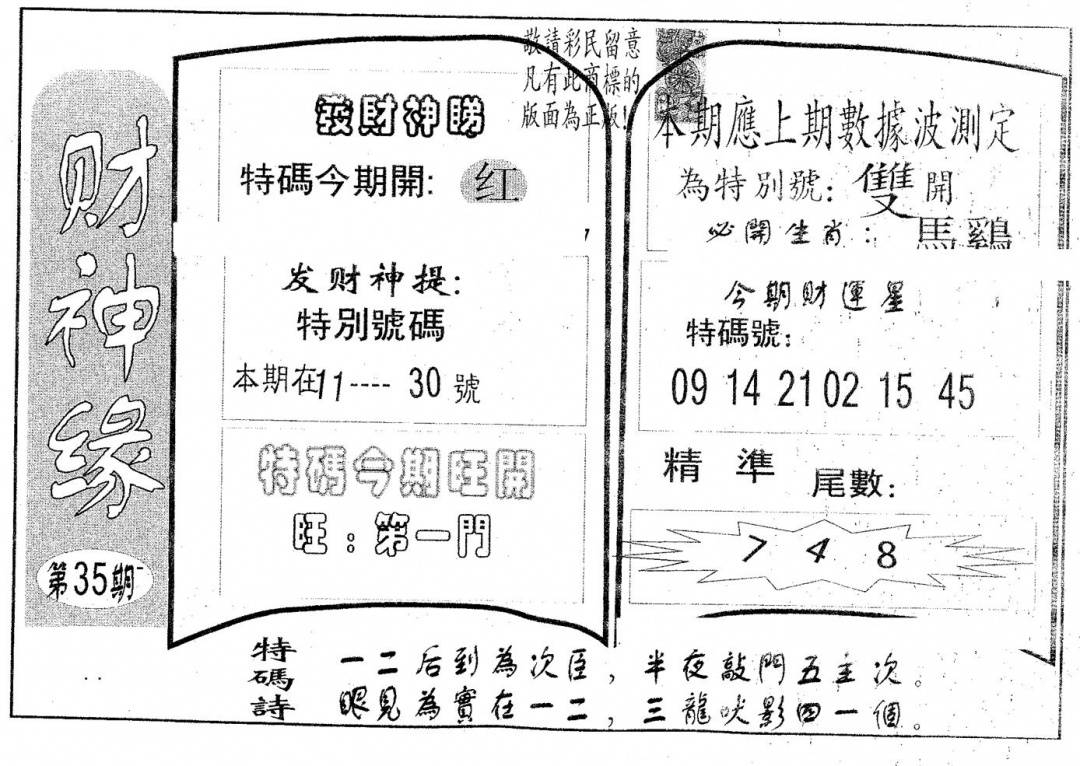 财神缘
第35期
發財神睇
特碼今期開: 红
发财神提:
特別號碼
本期在11---- 30號
特碼今期旺開
旺:第一門
敬請彩民留意
凡有此商標的
版面為正版!
本期應上期數據波測定
為特別號: 雙 開
必開生肖: 馬鷄
今期財運星
特碼號:
09 14 21 02 15 45
精準 尾數:
7 4 8
特碼詩
一二后到為次臣,半夜敲門五主次。
眼見為實在一二,三龍吠影四一個。